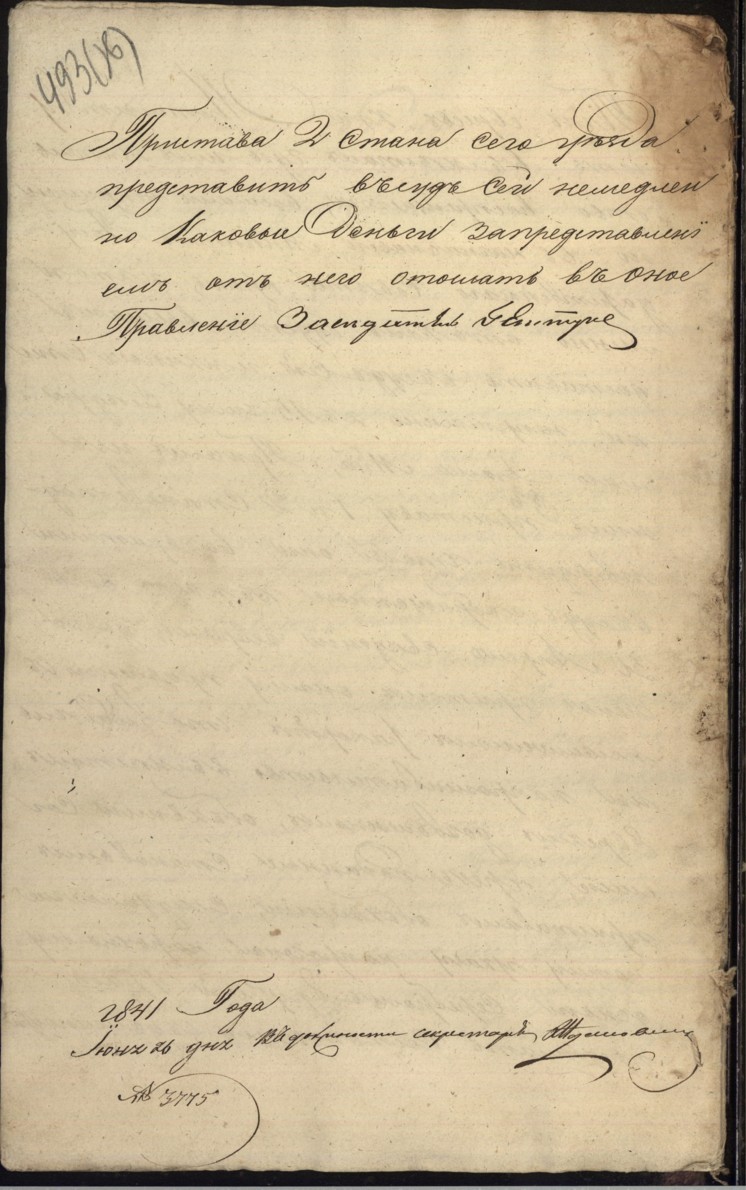 493(об)
Пристава 2 стана сего уѣзда
представить въ судъ сей немедлен
но Каковые Деньги запредставленї
емъ отъ него отослать въ оное
Правленїе Заседатель
1841 Года
Їюнъ 26 днъ Въ должности секретаря
№ 3775